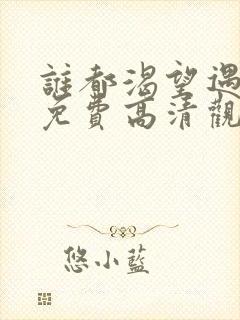 誰都渴望遇
免費高清觀
悠小藍